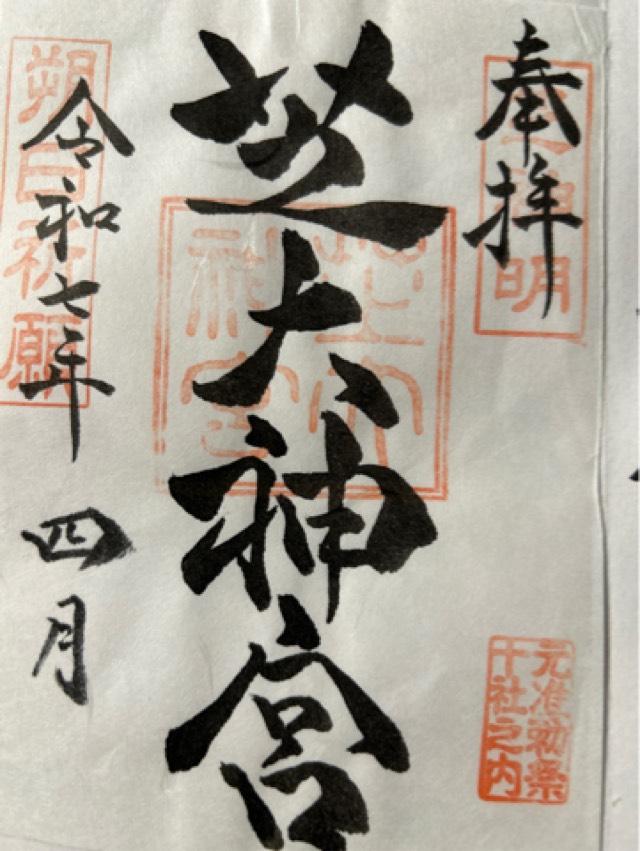 奉拝
芝大神宮
令和七年 四月
朔日祈願
芝大神宮
元准勅祭
十社之内